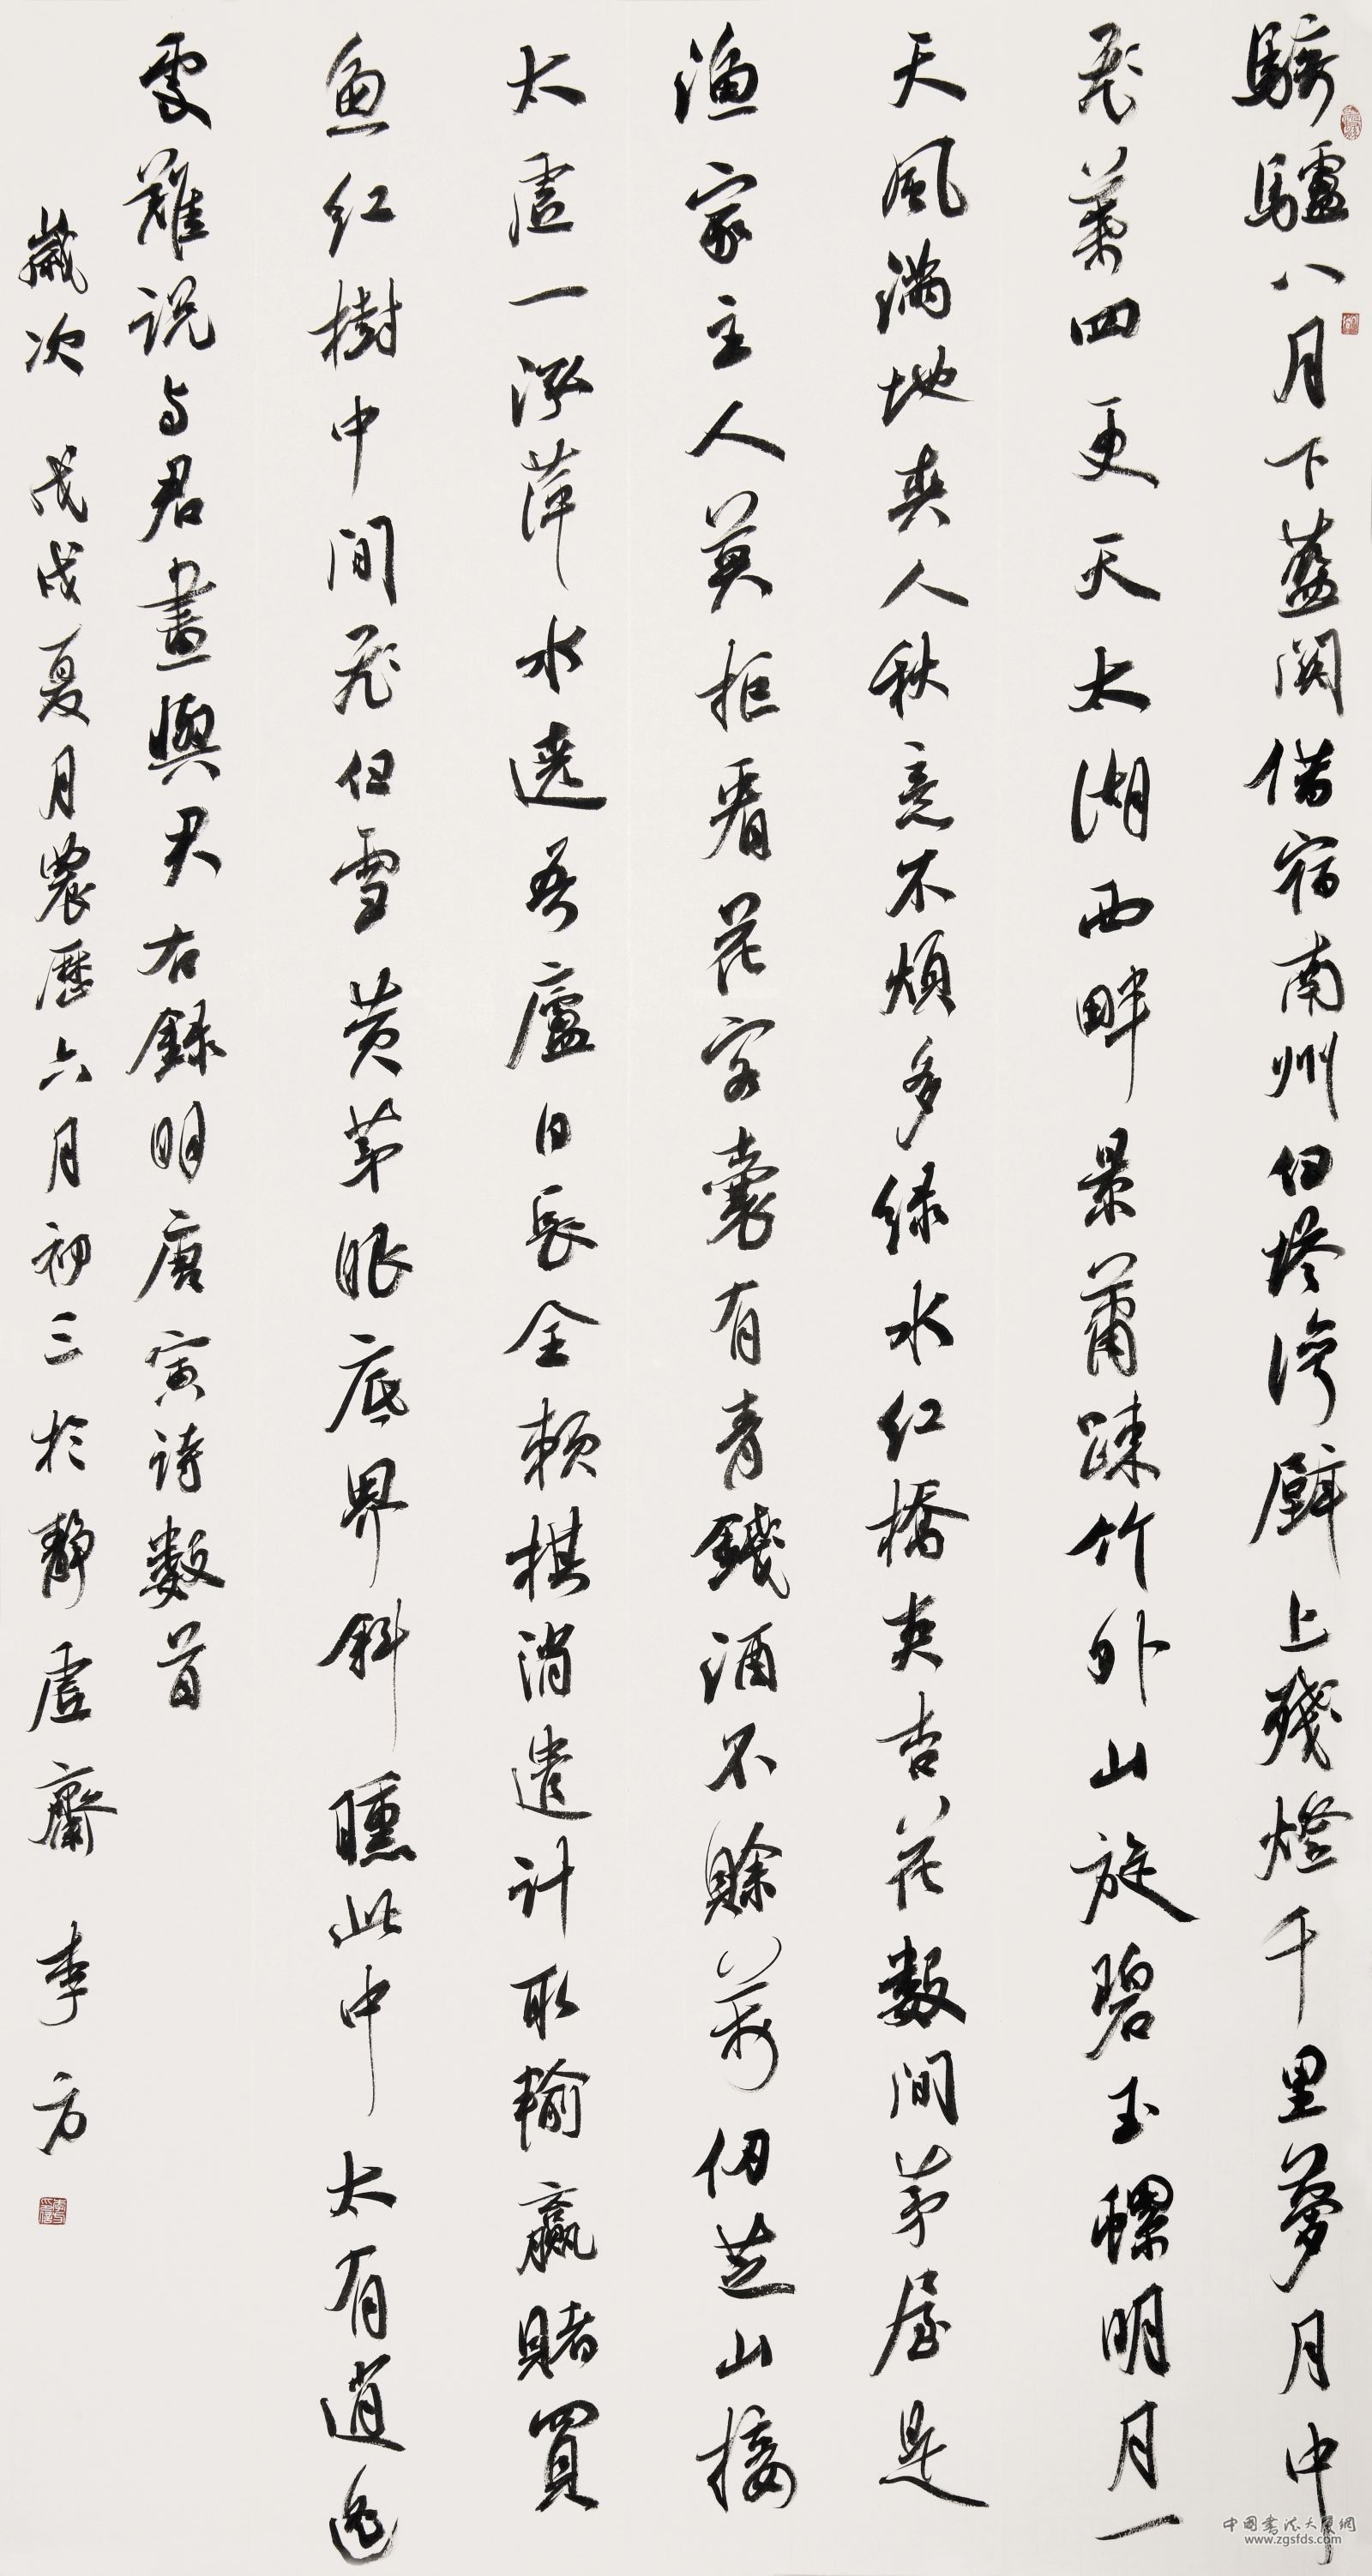 騎驢八月下藍關借宿南州白塔灣壁上殘燈千里夢月中
飛葉四更天太湖西畔景蕭疎竹外山旋碧玉螺明月一
天風滿地爽人秋意不煩多绿水红橋夾杏花數間茅屋是
漁家主人莫拒看花客囊有青錢酒不賒萬仞芝山接
太虛一泓萍水遶吾廬日長全賴棋消遣計取輸贏賭買
魚红樹中間飛白雪黄茅眼底界斜曛此中太有逍遥
處難说与君畫與君右録明唐寅诗数首
歲次戊戌夏月農歷六月初三於靜虛齋李方
中国书法大展網
www.zgsfds.com